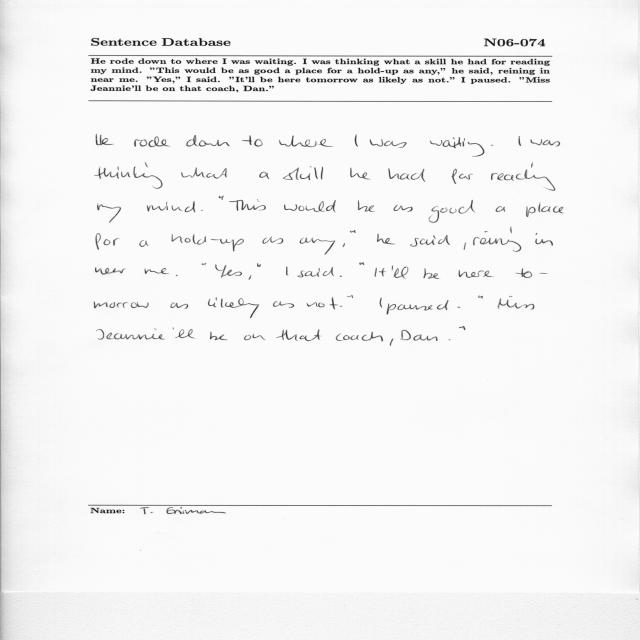 Sentence Database N06-074
He rode down to where I was waiting. I was thinking what a skill he had for reading
my mind. "This would be as good a place for a hold-up as any," he said, reining in
near me. "Yes," I said. "It'll be here tomorrow as likely as not." I paused. "Miss
Jeannie'll be on that coach, Dan."
He rode down to where I was waiting. I was
thinking what a skill he had for reading
my mind. "This would be as good a place
for a hold-up as any," he said, reining in
near me. "Yes," I said. "It'll be here to-
morrow as likely as not." I paused. "Miss
Jeannie'll be on that coach, Dan."
Name: T.